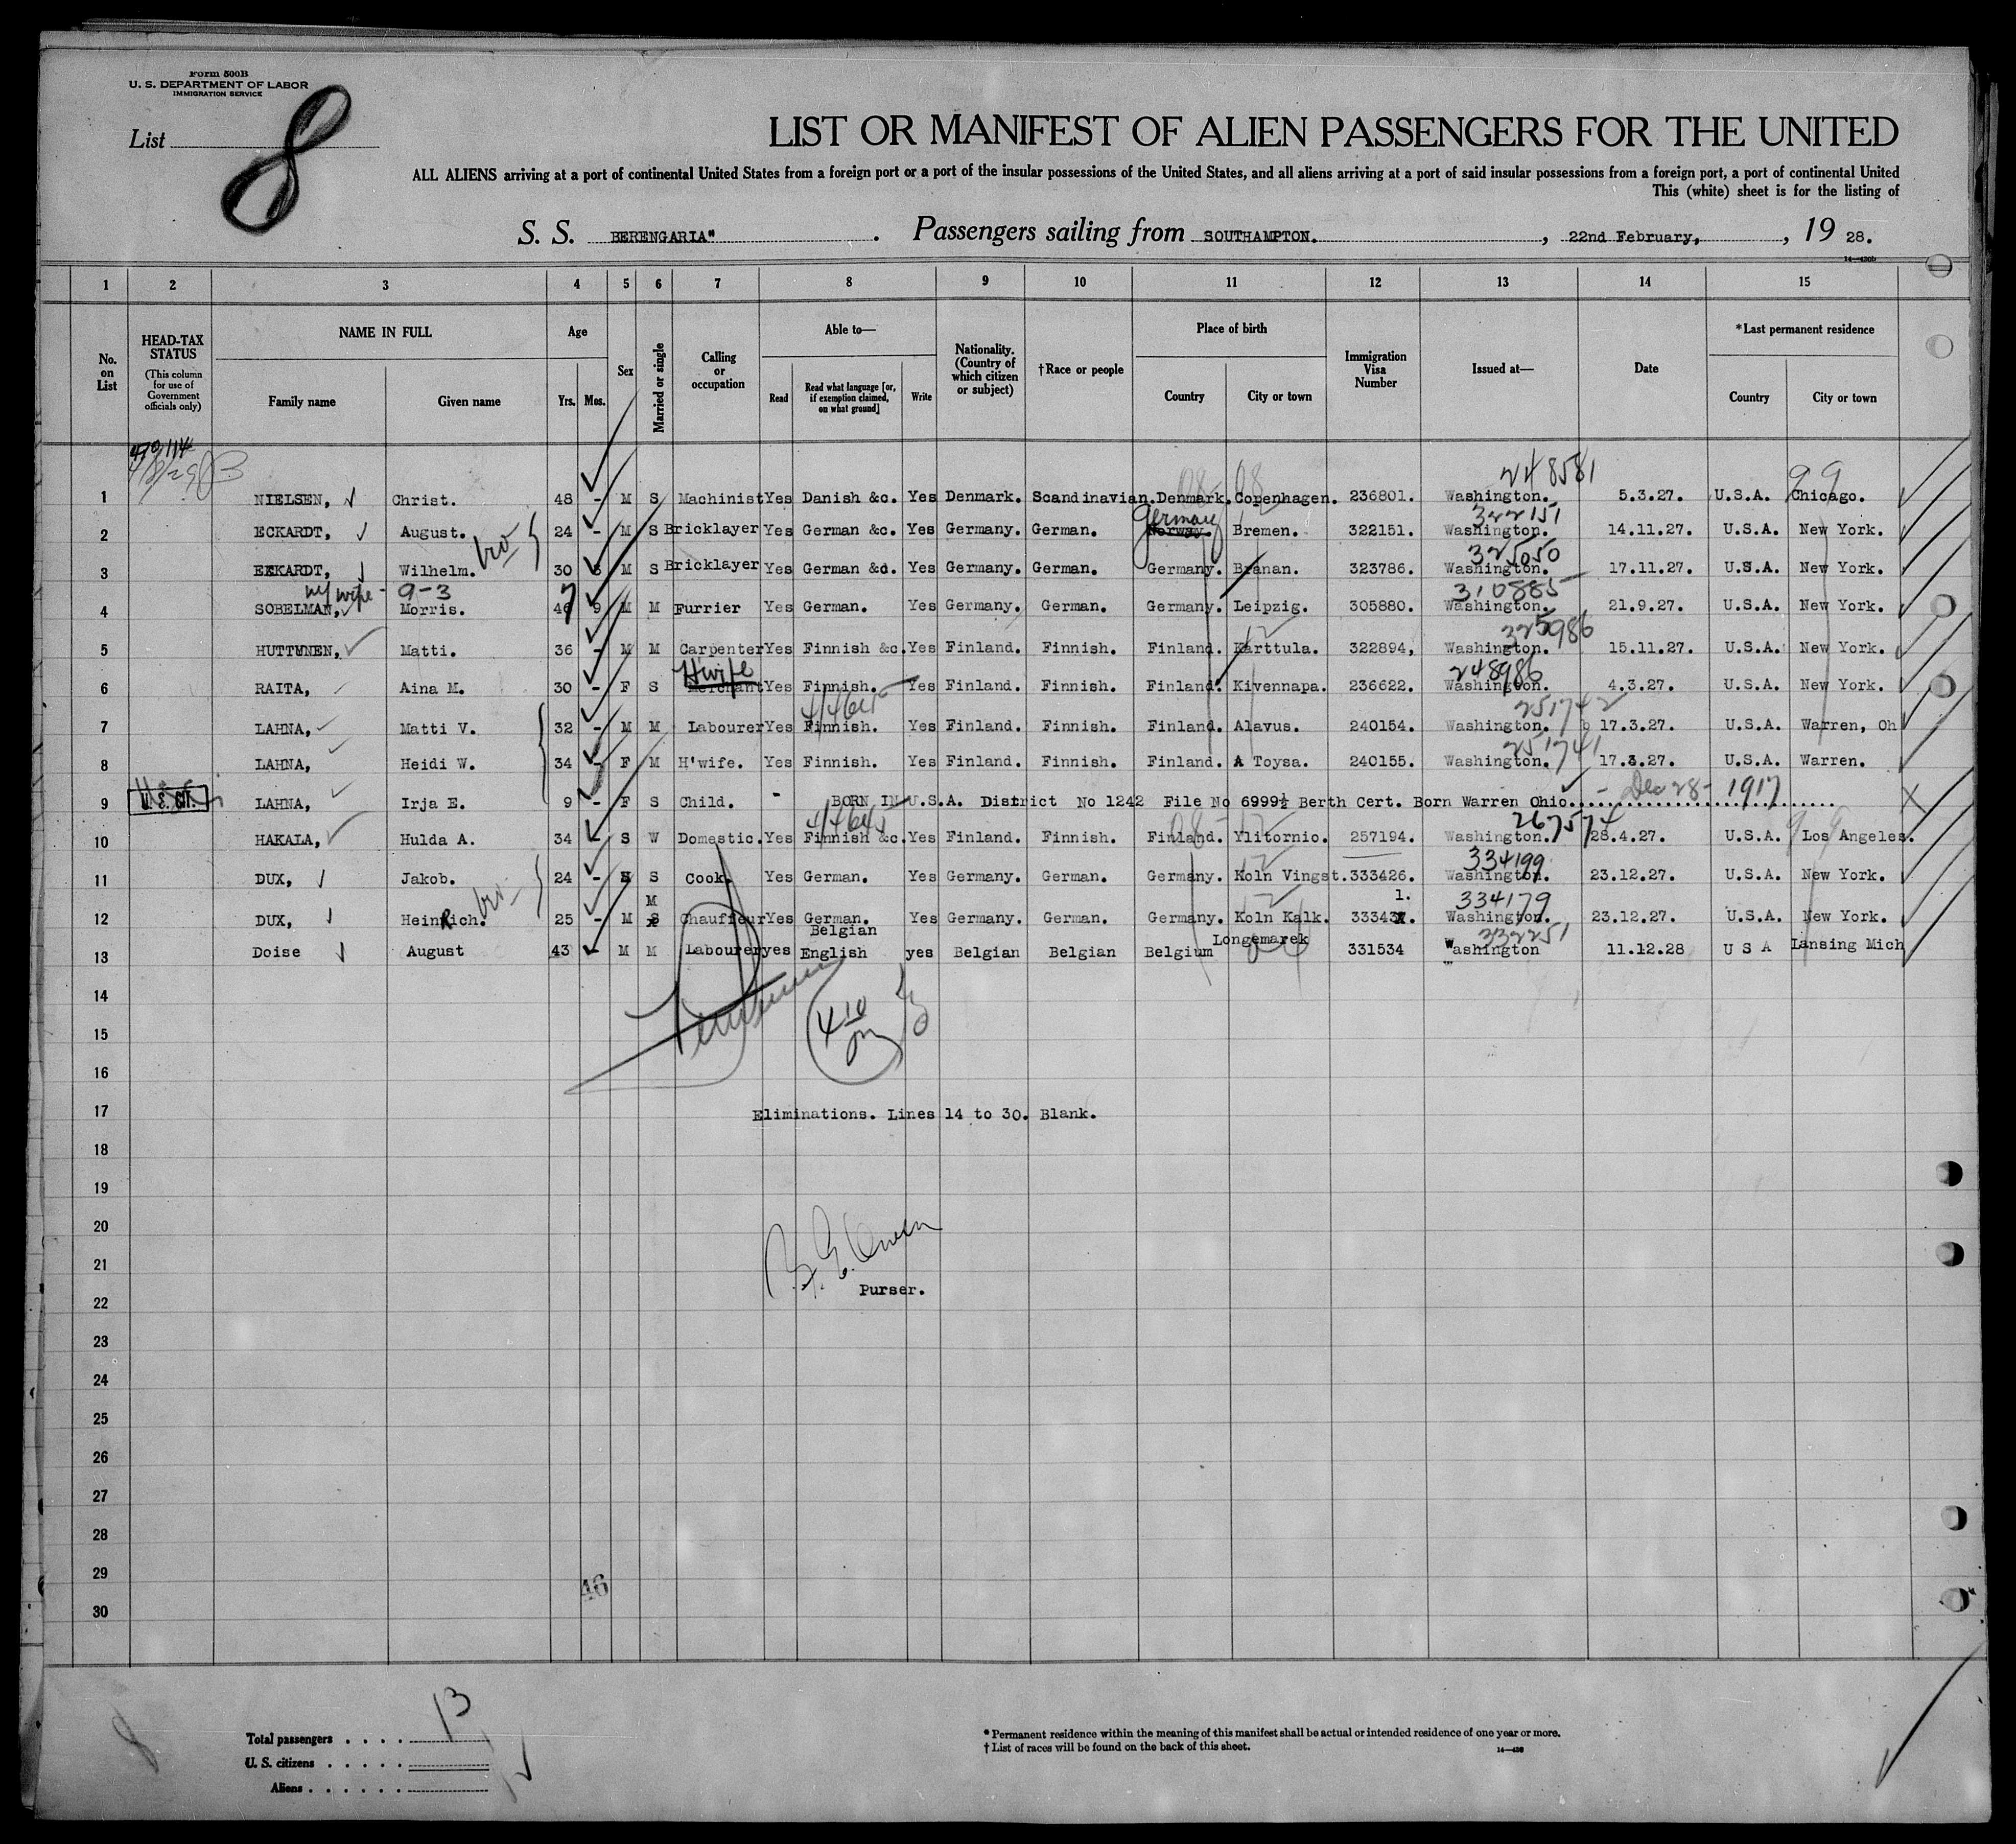 Form 500B
U. S. DEPARTMENT OF LABOR
IMMIGRATION SERVICE
List 8
LIST OR MANIFEST OF ALIEN PASSENGERS FOR THE UNITED
ALL ALIENS arriving at a port of continental United States from a foreign port or a port of the insular possessions of the United States, and all aliens arriving at a port of said insular possessions from a foreign port, a port of continental United
This (white) sheet is for the listing of
S. S. BERENGARIA" . Passengers sailing from SOUTHAMPTON. , 22nd February, , 19 28.
14—430b
1 2 3 4 5 6 7 8 9 10 11 12 13 14 15
No. on List
HEAD-TAX STATUS
(This column for use of Government officials only)
NAME IN FULL
Family name Given name
Age
Yrs. Mos.
Sex
Married or single
Calling or occupation
Able to—
Read Read what language [or, if exemption claimed, on what ground] Write
Nationality. (Country of which citizen or subject)
†Race or people
Place of birth
Country City or town
Immigration Visa Number
Issued at—
Date
*Last permanent residence
Country City or town
248581 99
1 NIELSEN, Christ. 48 - M S Machinist Yes Danish &c. Yes Denmark. Scandinavian. Denmark. Copenhagen. 236801. Washington. 5.3.27. U.S.A. Chicago.
Germany 322151
2 ECKARDT, August. 24 - M S Bricklayer Yes German &c. Yes Germany. German. Norway. Bremen. 322151. Washington. 14.11.27. U.S.A. New York.
bro 325050
3 EKKARDT, Wilhelm. 30 3 M S Bricklayer Yes German &c. Yes Germany. German. Germany. Branan. 323786. Washington. 17.11.27. U.S.A. New York.
wife - 9-3 7 310885
4 SOBELMAN, Morris. 46 9 M M Furrier Yes German. Yes Germany. German. Germany. Leipzig. 305880. Washington. 21.9.27. U.S.A. New York.
325986
5 HUTTUNEN, Matti. 36 - M M Carpenter Yes Finnish &c. Yes Finland. Finnish. Finland. Karttula. 322894, Washington. 15.11.27. U.S.A. New York.
H'wife 248986
6 RAITA, Aina M. 30 - F S Merchant Yes Finnish. Yes Finland. Finnish. Finland. Kivennapa. 236622. Washington. 4.3.27. U.S.A. New York.
251742
7 LAHNA, Matti V. 32 - M M Labourer Yes Finnish. Yes Finland. Finnish. Finland. Alavus. 240154. Washington. 17.3.27. U.S.A. Warren, Oh
251741
8 LAHNA, Heidi W. 34 - F M H'wife. Yes Finnish. Yes Finland. Finnish. Finland. A Toysa. 240155. Washington. 17.3.27. U.S.A. Warren.
9 U. S. CIT. LAHNA, Irja E. 9 - F S Child. - BORN IN U.S.A. District No 1242 File No 6999½ Berth Cert. Born Warren Ohio. - Dec 28 - 1917
267574
10 HAKALA, Hulda A. 34 S W Domestic. Yes Finnish &c. Yes Finland. Finnish. Finland. Ylitornio. 257194. Washington. 28.4.27. U.S.A. Los Angeles.
334199
11 DUX, Jakob. 24 - S Cook. Yes German. Yes Germany. German. Germany. Koln Vingst. 333426. Washington. 23.12.27. U.S.A. New York.
bro M 1. 334179
12 DUX, Heinrich. 25 - M S Chauffeur Yes German. Yes Germany. German. Germany. Koln Kalk. 33343 Washington. 23.12.27. U.S.A. New York.
Belgian Longemarek 332251
13 Doise August 43 M M Labourer yes English yes Belgian Belgian Belgium 331534 Washington 11.12.28 U S A Lansing Mich
14
15
16
17 Eliminations. Lines 14 to 30. Blank.
18
19
20
21
Purser.
22
23
24
25
26
27
28
29
46
30
Total passengers . . . . 13
U. S. citizens . . . . .
Aliens . . . . . .
* Permanent residence within the meaning of this manifest shall be actual or intended residence of one year or more.
† List of races will be found on the back of this sheet.
14—430